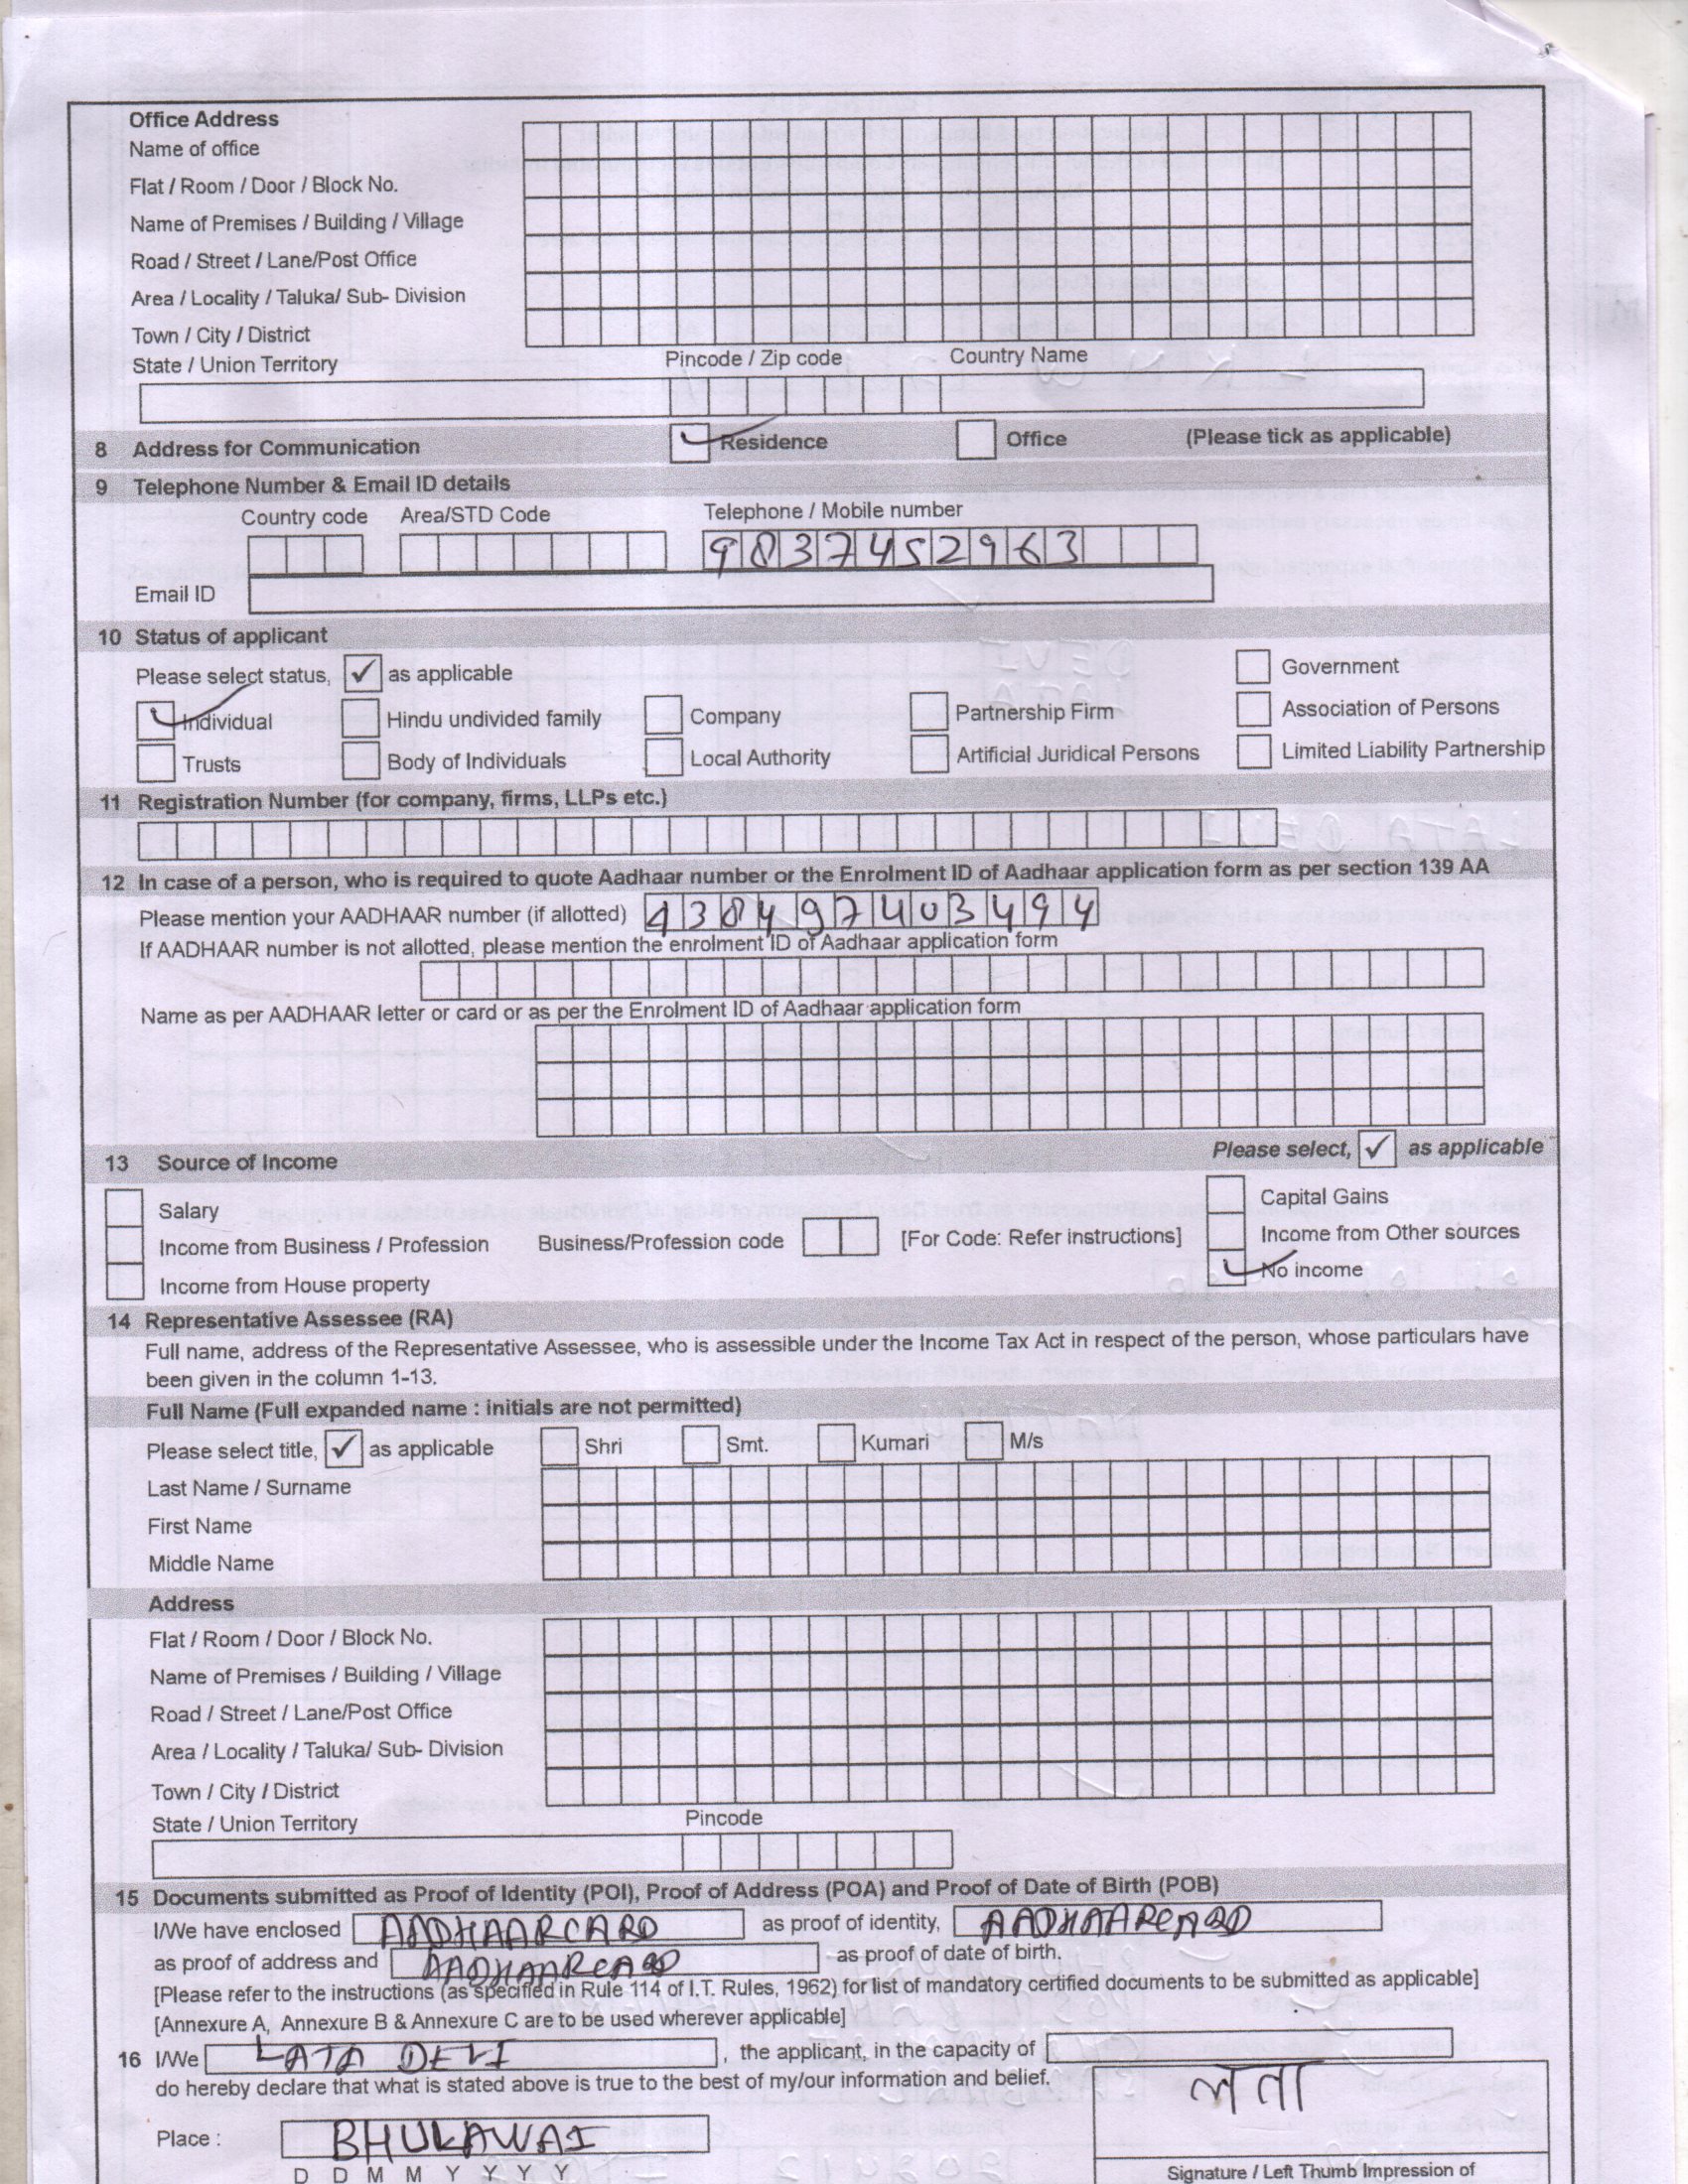 Office Address
Name of office
Flat / Room / Door / Block No.
Name of Premises / Building / Village
Road / Street / Lane/Post Office
Area / Locality / Taluka/ Sub- Division
Town / City / District
State / Union Territory Pincode / Zip code Country Name
8 Address for Communication Residence Office (Please tick as applicable)
9 Telephone Number & Email ID details
Country code Area/STD Code Telephone / Mobile number
9837452963
Email ID
10 Status of applicant
Please select status, ✓ as applicable Government
Individual Hindu undivided family Company Partnership Firm Association of Persons
Trusts Body of Individuals Local Authority Artificial Juridical Persons Limited Liability Partnership
11 Registration Number (for company, firms, LLPs etc.)
12 In case of a person, who is required to quote Aadhaar number or the Enrolment ID of Aadhaar application form as per section 139 AA
Please mention your AADHAAR number (if allotted) 438497403494
If AADHAAR number is not allotted, please mention the enrolment ID of Aadhaar application form
Name as per AADHAAR letter or card or as per the Enrolment ID of Aadhaar application form
13 Source of Income Please select, ✓ as applicable
Salary Capital Gains
Income from Business / Profession Business/Profession code [For Code: Refer instructions] Income from Other sources
Income from House property No income
14 Representative Assessee (RA)
Full name, address of the Representative Assessee, who is assessible under the Income Tax Act in respect of the person, whose particulars have
been given in the column 1-13.
Full Name (Full expanded name : initials are not permitted)
Please select title, ✓ as applicable Shri Smt. Kumari M/s
Last Name / Surname
First Name
Middle Name
Address
Flat / Room / Door / Block No.
Name of Premises / Building / Village
Road / Street / Lane/Post Office
Area / Locality / Taluka/ Sub- Division
Town / City / District
State / Union Territory Pincode
15 Documents submitted as Proof of Identity (POI), Proof of Address (POA) and Proof of Date of Birth (POB)
I/We have enclosed AADHAARCARD as proof of identity, AADHAARCARD
as proof of address and AADHAARCARD as proof of date of birth.
[Please refer to the instructions (as specified in Rule 114 of I.T. Rules, 1962) for list of mandatory certified documents to be submitted as applicable]
[Annexure A, Annexure B & Annexure C are to be used wherever applicable]
16 I/We LATA DEVI, the applicant, in the capacity of
do hereby declare that what is stated above is true to the best of my/our information and belief.
लता
Place : BHULAWAI
D D M M Y Y Y Y
Signature / Left Thumb Impression of